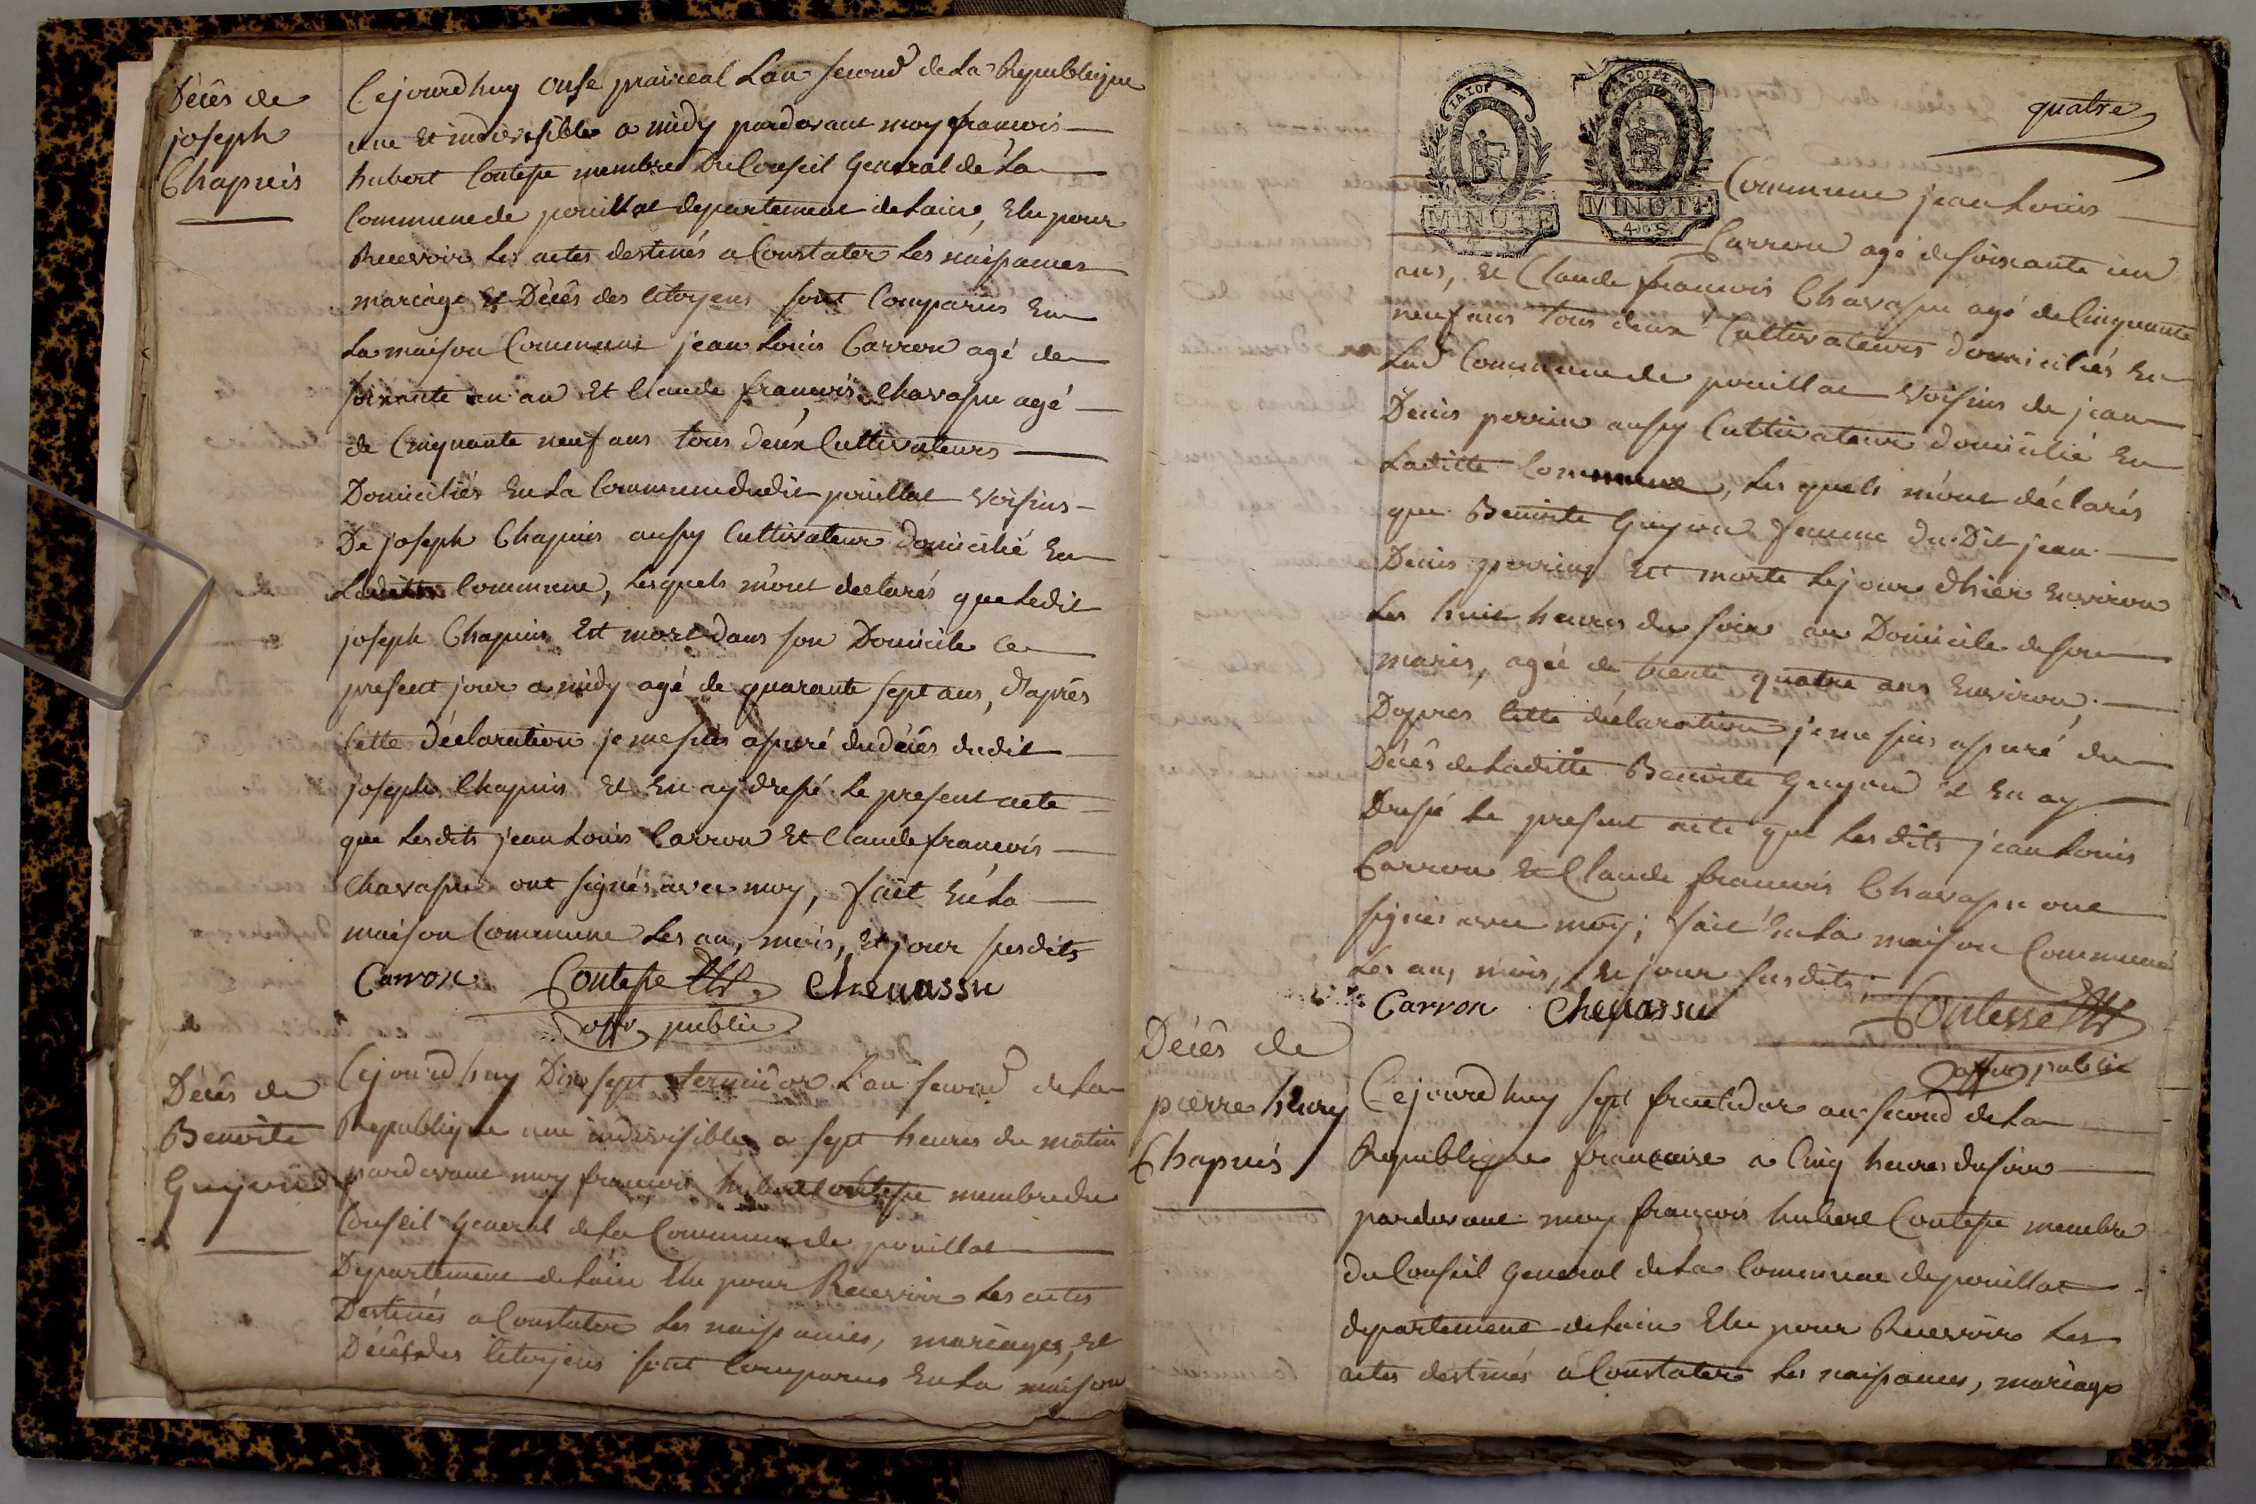 Décês de
joseph
Chapuis
Cejourdhuy onse prairéal L'an second de La Republique
une et indivisible a midy pardevant moy francois
hubert Contesse membre Du Conseil General de La
Commune de pouillat departement de Lain, Elu pour
Recevoir Les actes destinés a Constater Les naissances
mariage Et Décês des Citoyens sont Comparus En
La maison Commune jean Louis Carron agé de
soixante un an Et Claude francois Chavassu agé
de Cinquante neuf ans tous deux Cultivateurs
Domiciliés En La Commune dudit pouillat voisins
De joseph Chapuis aussy Cultivateur domicilié En
Laditte Commune, Lesquels m'ont declarés que Ledit
joseph Chapuis Est mort dans son Domicile ce
present jour a midy agé de quarante sept ans, d'aprês
Cette déclaration je me suis assuré du décês dudit
joseph Chapuis Et En ay dressé Le present acte
que Lesdits jean Louis Carron Et Claude francois
Chavassu ont signés avec moy, fait En La
maison Commune Les an, mois, Et jour susdits
Carron Contesse Chevassu
offr public
Décês de
Benoite
Guyon
Cejourdhuy Dixsept termidor L'an second de La
Republique une indivisible a sept heures du matin
pardevant moy francois hubert Contesse membre du
Conseil General de La Commune de pouillat
Departement de Lain Elu pour Recevoir Les actes
Destinés a Constater Les naissances, mariages, et
Décês des Citoyens sont Comparus En La maison
quatre
MINUTE
MINUTE
4 S
Commune jean Louis
Carron agé de soixante un
ans, Et Claude francois Chavassu agé de Cinquante
neuf ans tous deux Cultivateurs domiciliés En
Lad Commune de pouillat voisins de jean
Denis perrin aussy Cultivateur domicilié En
Laditte Commune, Les quels m'ont déclarés
que Benoite Guyon femme du Dit jean
Denis perrin Est morte Lejour d'hier Environ
Les huit heures du soir au Domicile de son
maris, agée de trente quatre ans Environ,
D'apres Cette déclaration je me suis assuré du
Décês de Laditte Benoite Guyon Et En ay
Dressé Le present acte que Les dits jean Louis
Carron Et Claude francois Chavassu ont
signés avec moy; fait En La maison Commune
Les an, mois, Et jour susdits
Carron Chevassu Contesse
offr public
Décês de
pierre henry
Chapuis
Cejourdhuy sept fructidor an second de La
Republique francaise a Cinq heures du soir
pardevant moy françois hubert Contesse membre
du Conseil General de La Commune de pouillat
departement de Lain Elu pour Recevoir Les
actes destinés a Constater Les naissances, mariage